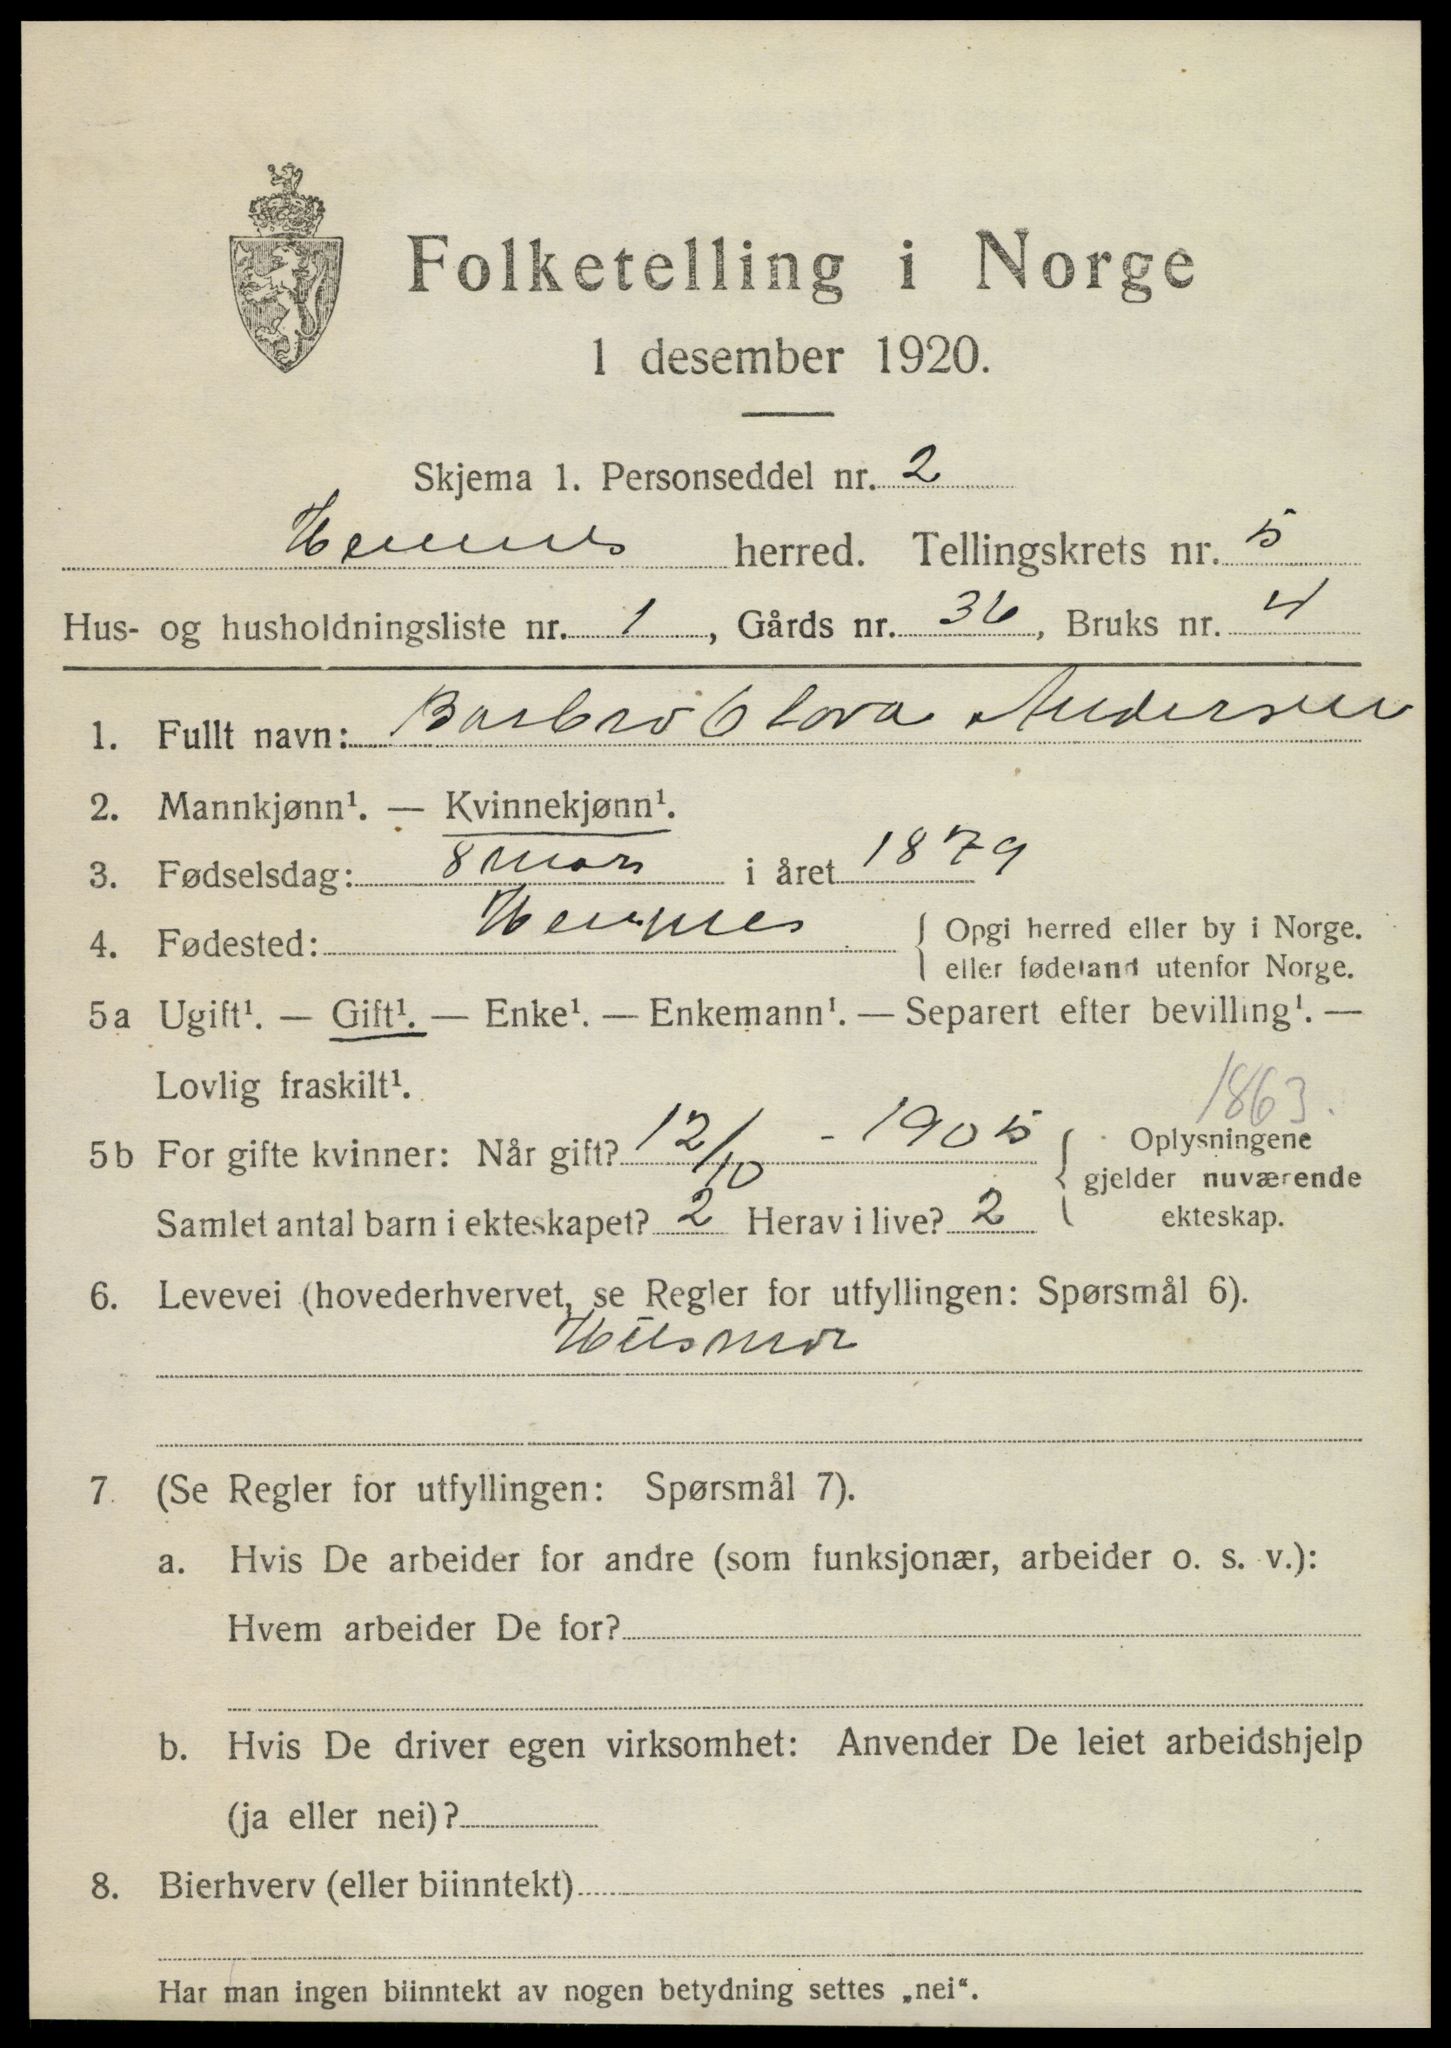 Folketelling i Norge
1 desember 1920.
Skjema 1. Personseddel nr. 2
Hemnes herred. Tellingskrets nr. 5
Hus- og husholdningsliste nr. 1, Gårds nr. 36, Bruks nr. 4
1. Fullt navn: Barbro Olova Andersen
2. Mannkjønn¹. — Kvinnekjønn¹.
3. Fødselsdag: 8 mars i året 1879
4. Fødested: Hemnes { Opgi herred eller by i Norge.
eller fødeland utenfor Norge.
5a Ugift¹. — Gift¹. — Enke¹. — Enkemann¹. — Separert efter bevilling¹. —
Lovlig fraskilt¹.
1863.
5b For gifte kvinner: Når gift? 12/10 - 1905 { Oplysningene
gjelder nuværende
ekteskap.
Samlet antal barn i ekteskapet? 2 Herav i live? 2
6. Levevei (hovederhvervet, se Regler for utfyllingen: Spørsmål 6).
Husmor
7. (Se Regler for utfyllingen: Spørsmål 7).
a. Hvis De arbeider for andre (som funksjonær, arbeider o. s. v.):
Hvem arbeider De for?
b. Hvis De driver egen virksomhet: Anvender De leiet arbeidshjelp
(ja eller nei)?
8. Bierhverv (eller biinntekt)
Har man ingen biinntekt av nogen betydning settes „nei“.